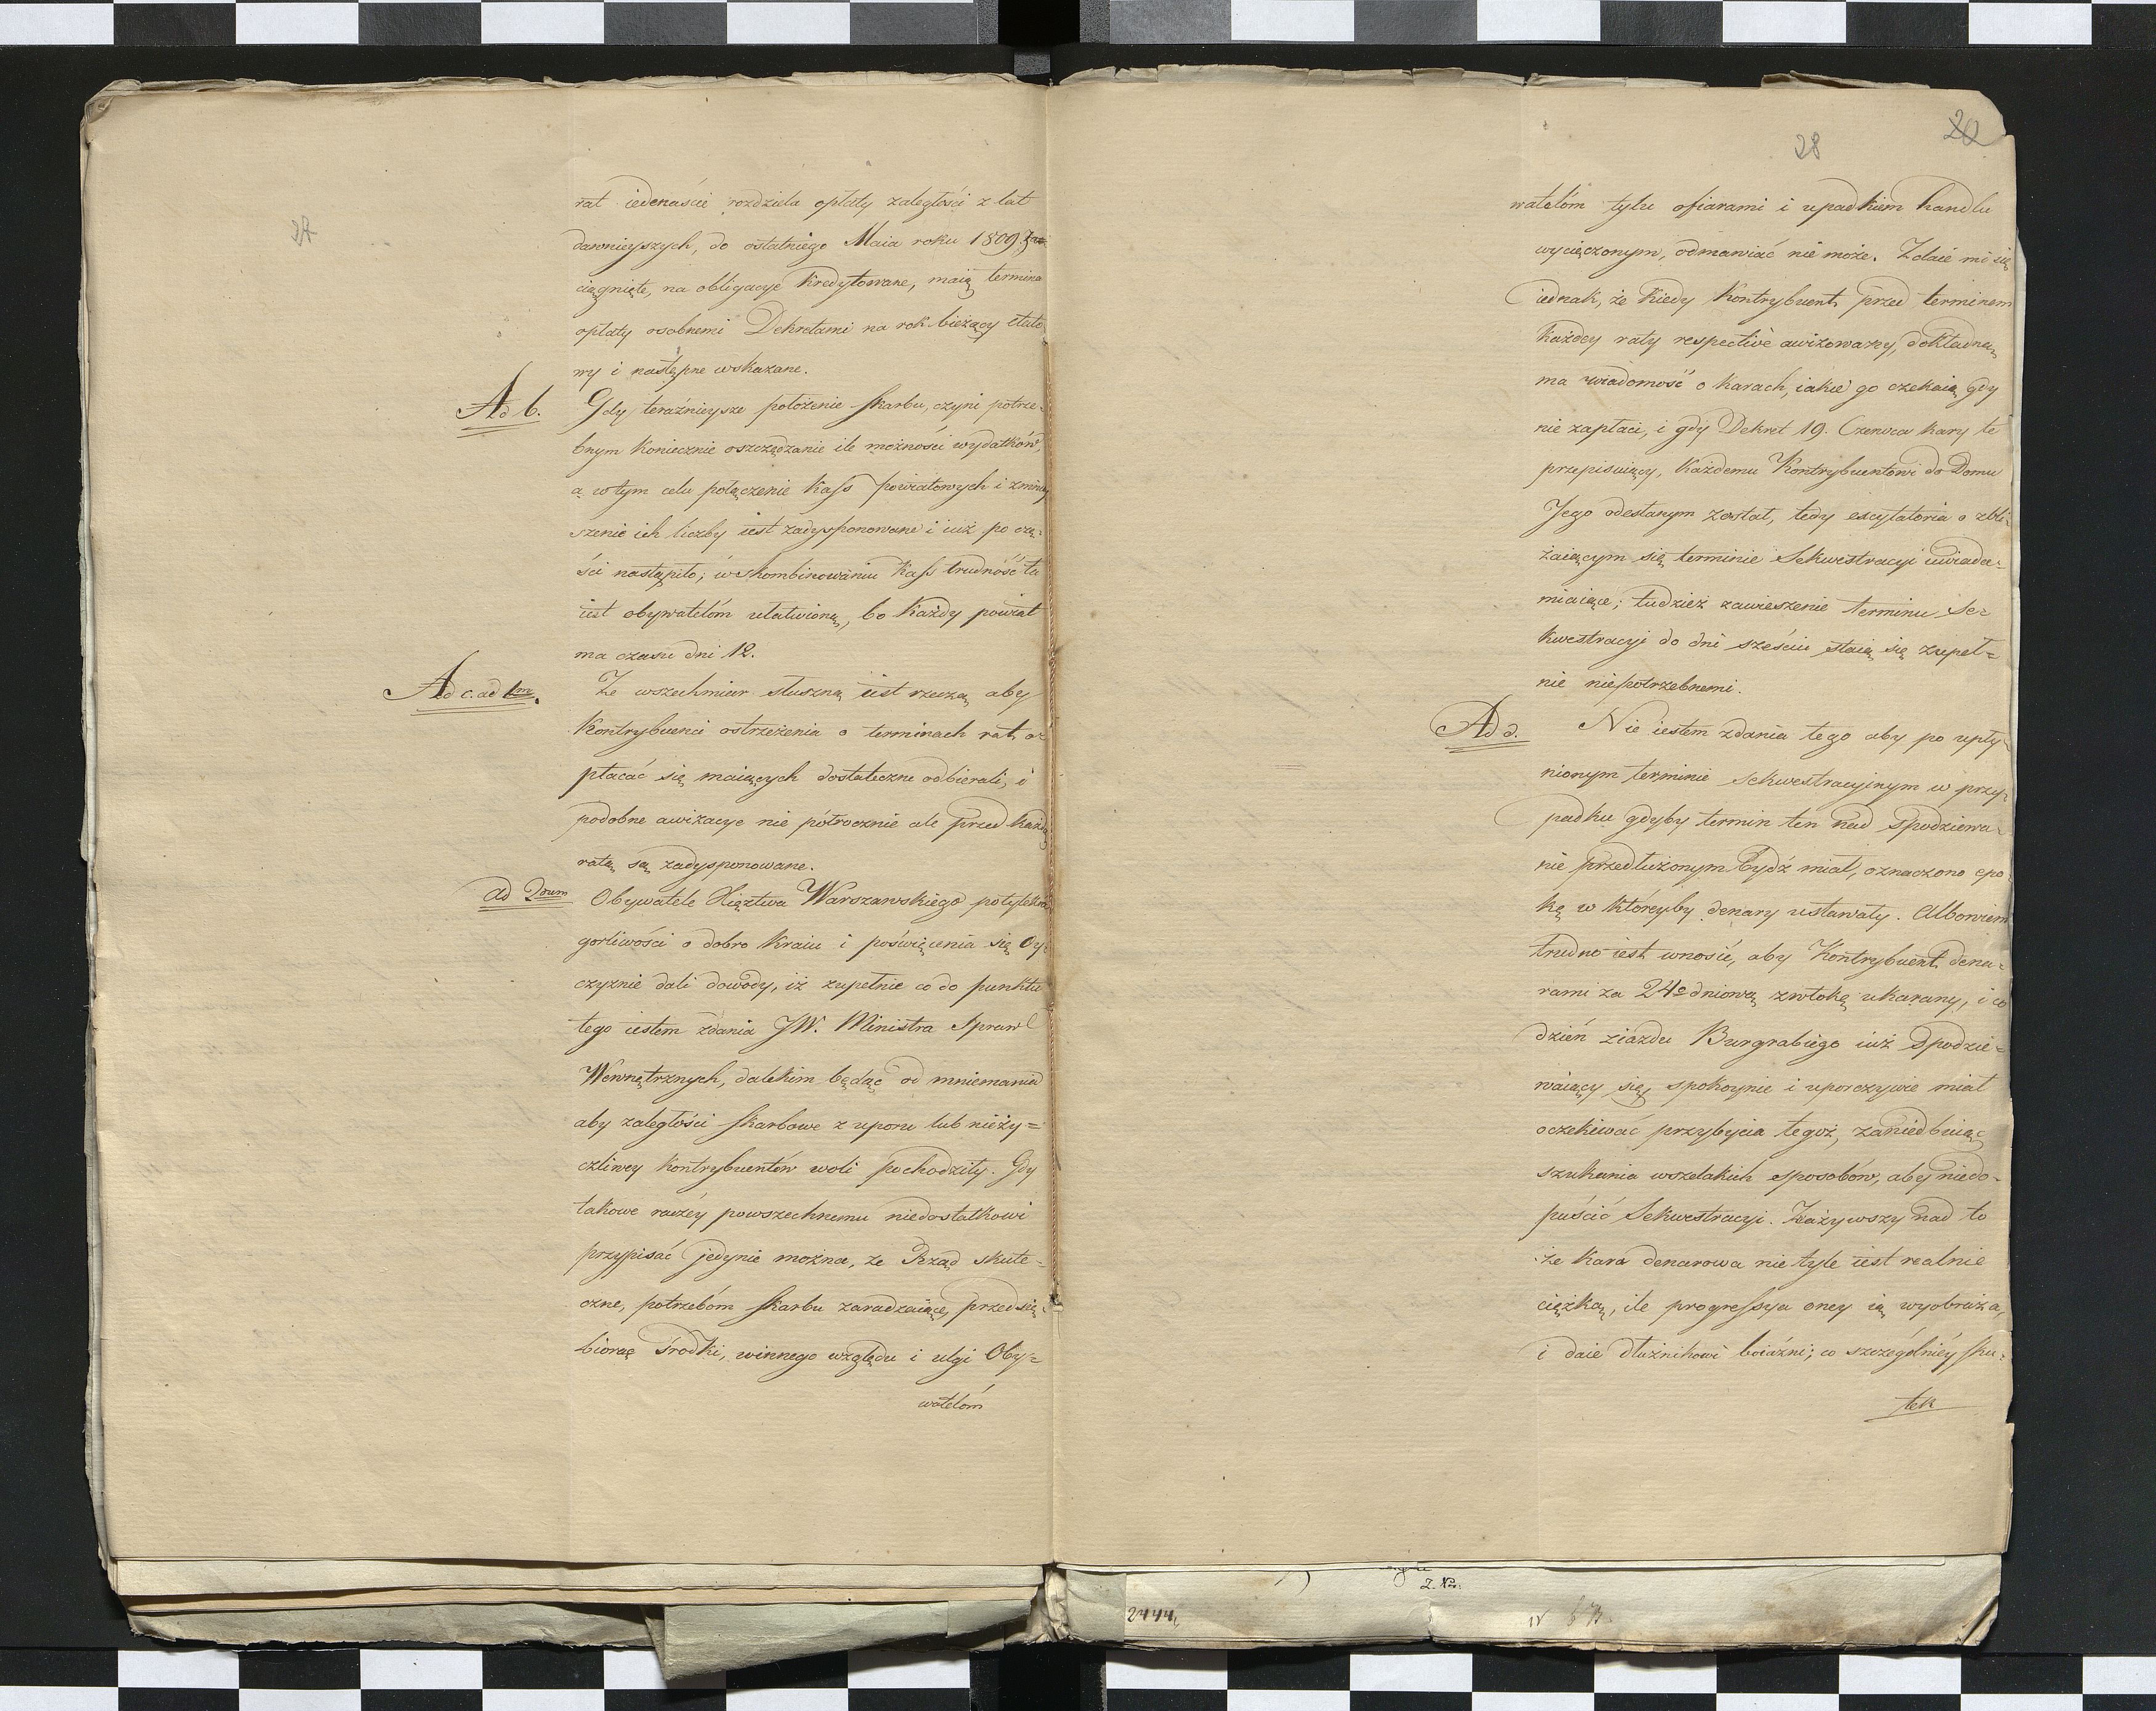 27
rat iedenaście rozdziela opłaty zaległości z lat
dawnieyszych, do ostatniego Maia roku 1809 za=
ciągnięte, na obligacye kredytowane, maią termina
opłaty osobnemi Dekretami na rok bieżący etato
wy i następne wskazane.
Ad b. Gdy teraźnieysze położenie skarbu, czyni potrze=
bnym koniecznie oszczędzanie ile możności wydatków,
a w tym celu połączenie kass powiatowych i zmniey
szenie ich liczby iest zadysponowane i iuż po czę=
ści nastąpiło; w skombinowaniu kass trudność ta
iest obywatelóm ułatwioną, bo każdy powiat
ma czasu dni 12.
Ad c. ad 1m. Ze wszechmiar słuszną iest rzeczą aby
kontrybuenci ostrzeżenia o terminach rat o=
płacać się maiących dostateczne odbierali, i
podobne awizacye nie półrocznie ale przed każdą
ratą są zadysponowane.
ad 2dum Obywatele Xięztwa Warszawskiego po tylekroć
gorliwości o dobro kraiu i poświęcenia się Oy=
czyznie dali dowody, iż zupełnie co do punktu
tego iestem zdania JW. Ministra Spraw
Wewnętrznych, dalekim będąc od mniemania
aby zaległości skarbowe z uporu lub nieży=
czliwey kontrybuentów woli pochodziły. Gdy
takowe raczéy powszechnemu niedostatkowi
przypisać jedynie można, że Rząd skute=
czne, potrzebóm skarbu zaradzaiące, przedsię=
biorąc środki, winnego względu i ulgi Oby=
watelóm
20
28
watelóm tylu ofiarami i upadkiem handlu
wycięczonym, odmawiać nie może. Zdaie mi się
iednak, że kiedy kontrybuent przed terminem
każdey raty respectivè awizowany, dokładną
ma wiadomość o karach, iakie go czekaią gdy
nie zapłaci, i gdy Dekret 19. Czerwca kary te
przepisuiący, każdemu Kontrybuentowi do Domu
Jego odesłanym został, tedy excytatoria o zbli=
żaiącym się terminie Sekwestracyi uwiada=
miaiące; tudzież zawieszenie terminu Se=
kwestracyi do dni sześciu staią się zupeł=
nie niepotrzebnemi.
Ad d. Nie iestem zdania tego aby po upły=
nionym terminie sekwestracyjnym w przy=
padku gdyby termin ten nad spodziewa=
nie przedłużonym bydź miał, oznaczono epo
kę w któreyby denary ustawały. Albowiem
trudno iest wnosić, aby Kontrybuent dena=
rami za 24o dniową zwłokę ukarany, i co
dzień ziazdu Burgrabiego iuż spodzie=
waiący się, spokoynie i uporczywie miał
oczekiwać przybycia tegoż, zaniedbuiąc
szukania wszelakich sposobów, aby niedo=
puścić Sekwestracyi. Zważywszy nad to
że kara denarowa nie tyle iest realnie
ciężką, ile progressya oney ią wyobraża,
i daie dłużnikowi boiaźni; co szczególniéy sku=
tek
2444
Z. No.